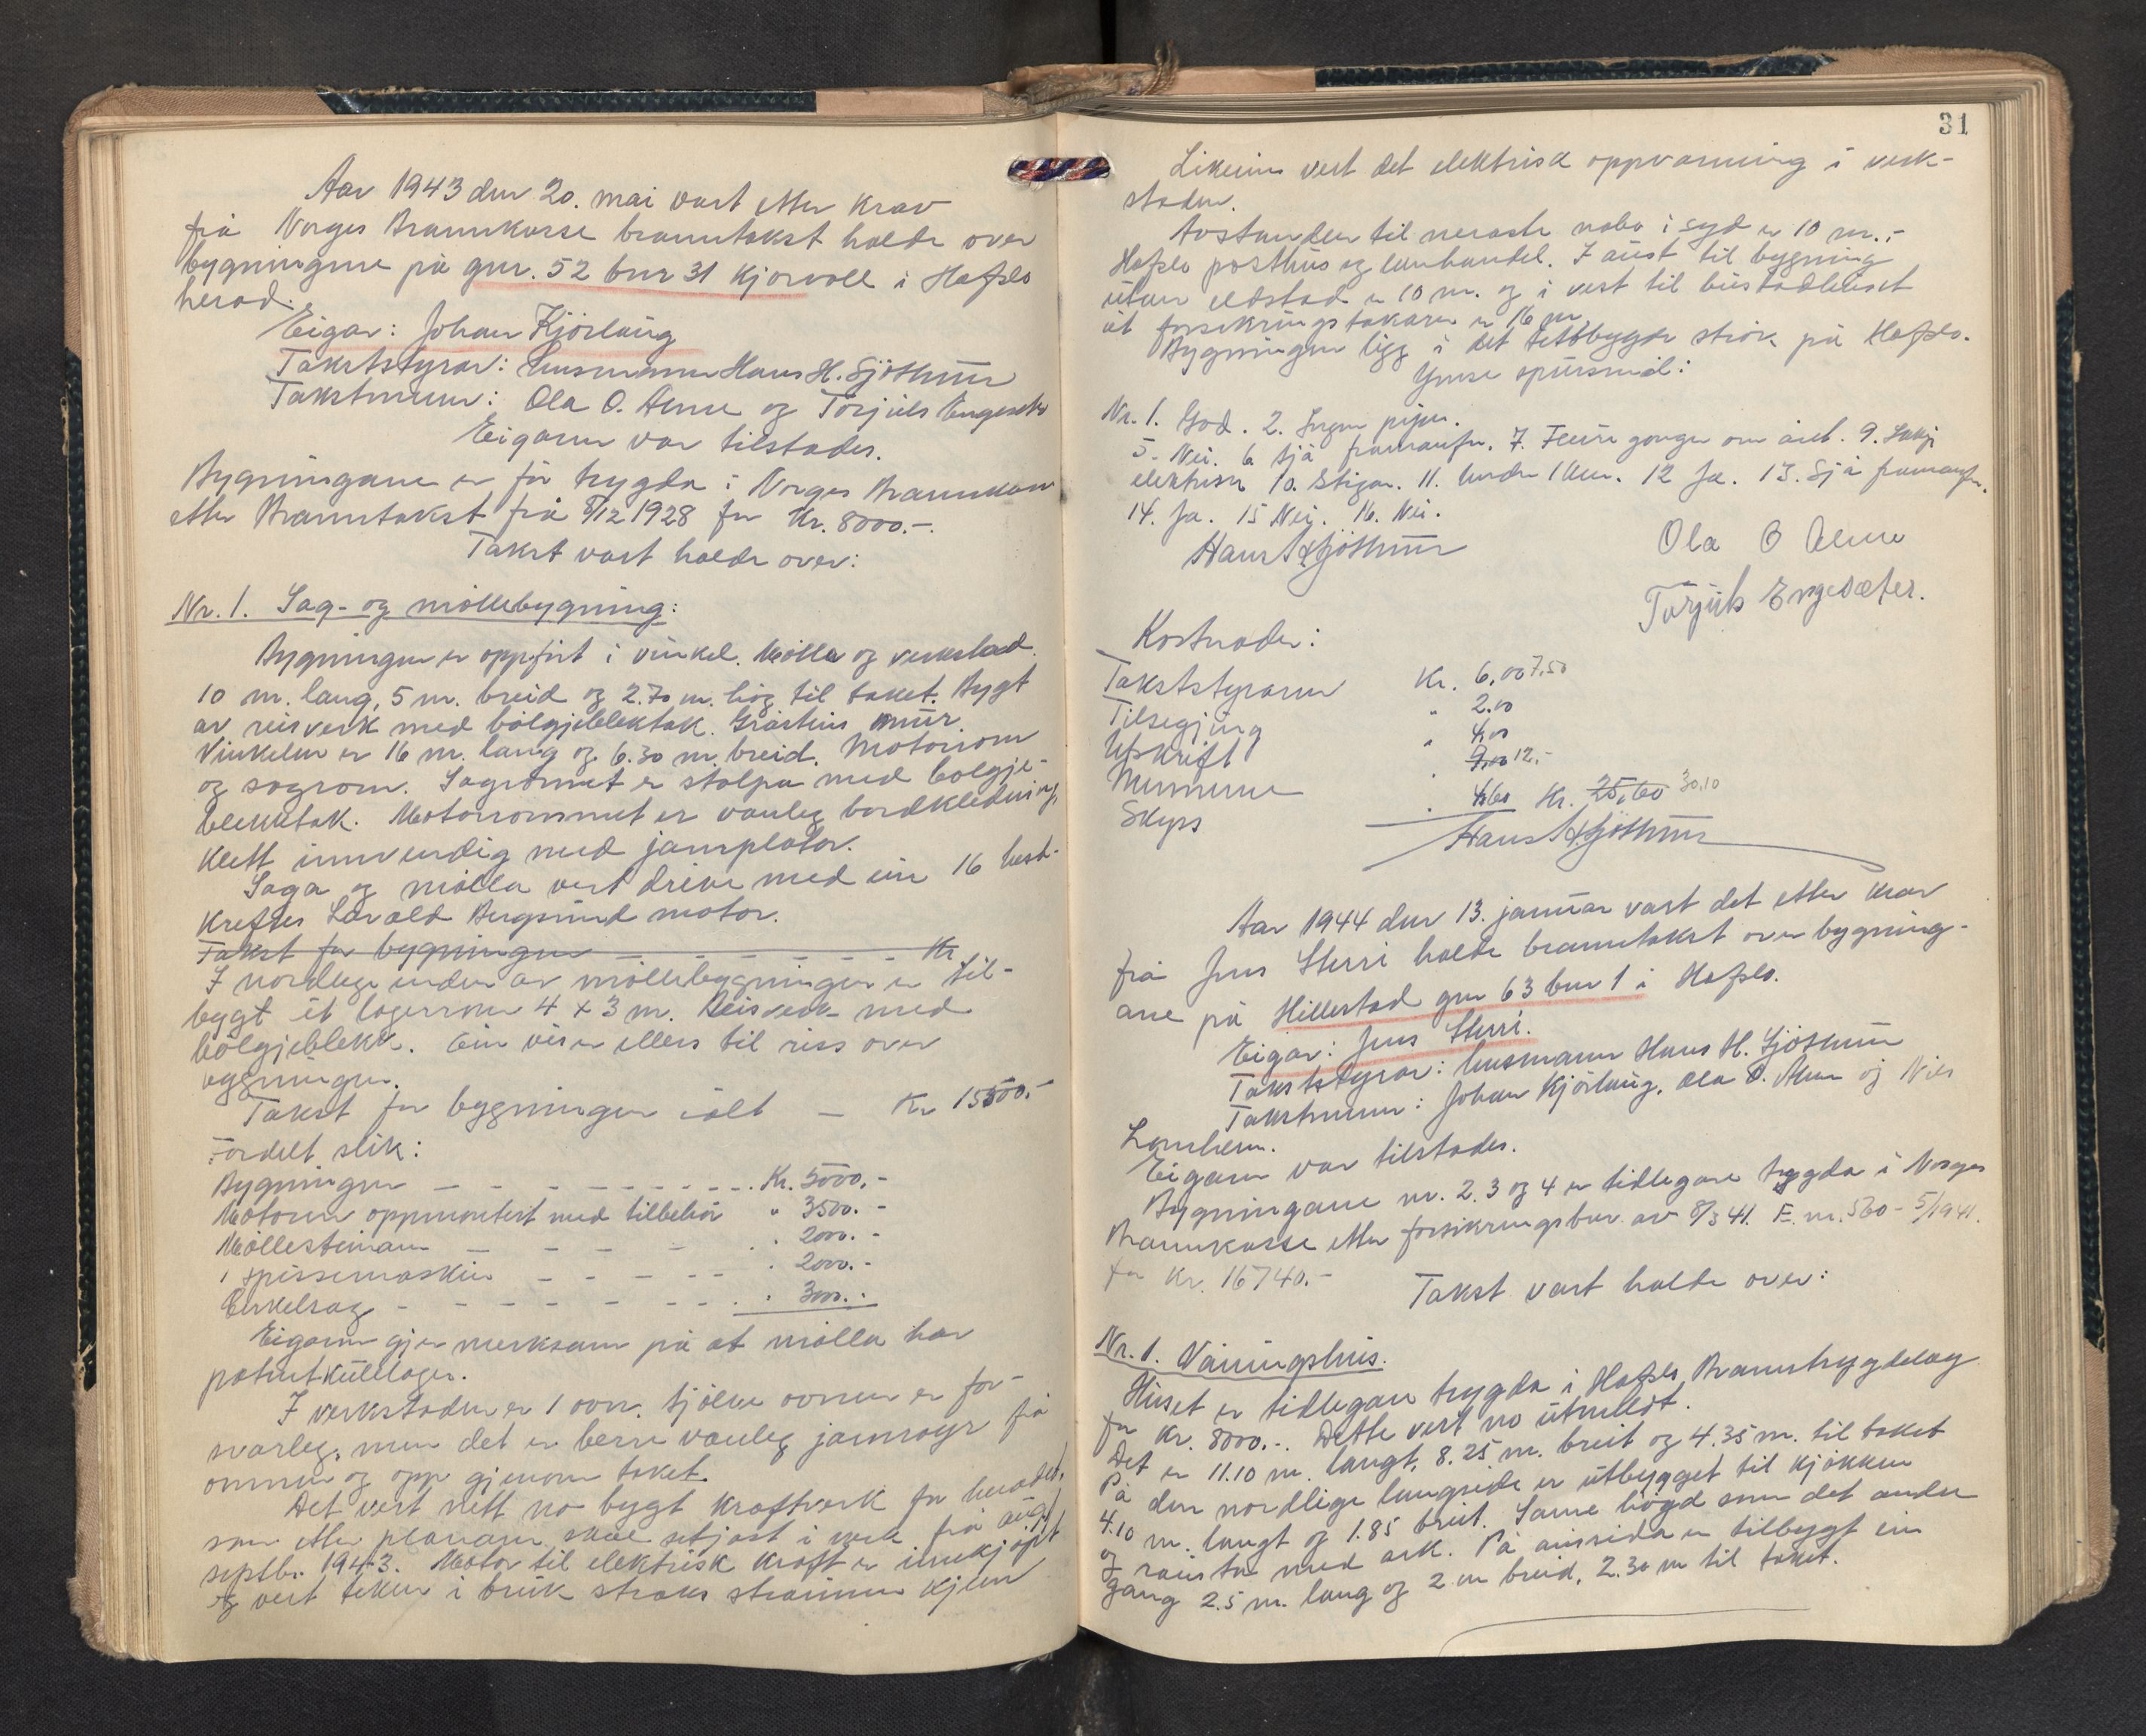 Aar 1943 den 20. mai vart etter krav
frå Norges Brannkasse branntakst halde over
bygningane på gnr. 52 bnr 31 Kjorvoll i Hafslo
herad.
Eigar: Johan Kjörlaug
Takststyrar: Lensmann Hans H. Sjøthun
Takstmenn: Ola O. Alme og Torjuls Engeseter
Eigaren var tilstades.
Bygningane er för trygda i Norges Brannkasse
etter Branntakst frå 8/12 1928 for Kr. 8000.-.
Takst vart halde over:
Nr. 1. Sag- og möllebygning:
Bygningen er oppført i vinkel. Mölla og verkstad
10 m. lang, 5 m. breid og 2.70 m. høg til taket. Bygt
av reisverk med bölgjeblektak. Gråstein mur.
Vinkelen er 16 m. lang og 6.30 m. breid. Motorrom
og sagrom. Sagromet er stolpa med bolgje-
blekktak. Motorrommet er vanleg bordkledning,
kledt innvendig med jarnplater.
Saga og mölla vert drive med ein 16 hest-
krefters Lavald Bergsund motor.
Takst for bygningen - - - - - Kr
I nordlege enden av möllebygningen er til-
bygt eit lagerrom 4 x 3 m. Reisverk med
bölgjeblekk. Ein viser ellers til riss over
bygningen.
Takst for bygningen ialt - Kr 15500.-
Fordelt slik:
Bygningen - - - - - - - - Kr. 5000.-
Motoren oppmontert med tilbehör " 3500.-
Möllesteinane - - - - - " 2000.-
1 spissemaskin - - - - - " 2000.-
Cirkelsag - - - - - - - - " 3000.-
Eigaren gjer merksam på at mölla har
patent kullager.
I verkstaden er 1 ovn. Sjölve ovnen er for-
svarleg, men det er berre vanleg jarnrøyr frå
omnen og opp gjenom taket.
Det vert nett no bygt kraftverk for heradet,
som etter planen skal setjast i verk frå aug/
septbr. 1943. Motor til elektrisk kraft er innkjøpt
og vert teken i bruk straks straumen kjem
31
Likeeins vert det elektrisk oppvarming i verk-
staden.
Avstanden til neraste nabo i syd er 10 m.:-
Hafslo posthus og lanhandel. I aust til bygning
utan eldstad er 10 m. og i vest til bustadhuset
åt forsikringstakaren er 16 m.
Bygningen ligg i det tettbygde strök på Hafslo.
Ymse spursmål:
Nr. 1. God. 2. Ingen piper.
5. Nei. 6 sjå framanfor. 7. Fleire gonger om året. 9.
elektrisk 10. Stigar. 11. Under 1 km. 12 Ja. 13. Sjå framanfor.
14. Ja. 15 Nei. 16. Nei.
Hans H Sjøthun
Ola O Alme
Torjuls Engesæter.
Kostnader:
Takststyraren Kr. 6,00 7,50
Tilsegjing " 2.00
Utskrift " 4,00
Mennene " 9,00 12.-
Skyss " 4,60 Kr. 25,60 30,10
Hans H Sjøthun
Aar 1944 den 13. januar vart det etter krav
frå Jens Sterri halde branntakst over bygning-
ane på Hillestad gnr 63 bnr 1 i Hafslo.
Eigar: Jens Sterri.
Takststyrar: Lensmann Hans H. Sjøthun
Takstmenn: Johan Kjörlaug, Ola O. Alme og Nils
Lomheim.
Eigaren var tilstades.
Bygningane nr. 2. 3 og 4 er tidlegare trygda i Norges
Brannkasse etter forsikringsbev. av 8/3 41. E. nr. 560 - 5/1941.
for Kr. 16740.-
Takst vart halde over:
Nr. 1. Våningshus.
Huset er tidlegare trygda i Hafslo Branntrygdelag
for Kr. 8000.-. Dette vert no utmeldt.
Det er 11.10 m. langt, 8.25 m. breit og 4.35 m. til taket
På den nordlige langside er utbygget til kjøkken
4.10 m. langt og 1.85 breit. Same högd som det andre
og røista med ark. På austsida er tilbygt ein
gang 2.5 m. lang og 2 m breid, 2.30 m til taket.